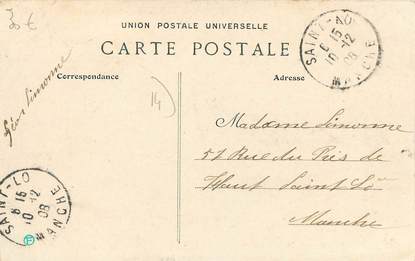 30 €
UNION POSTALE UNIVERSELLE
CARTE POSTALE
Correspondance
Adresse
SAINT-LO
6 15
10 -12
08
MANCHE
14
Simonne
Madame Simonne
57 Rue du Prés de
Haut Saint Lo
Manche
SAINT-LO
8 15
10 -12
08
MANCHE